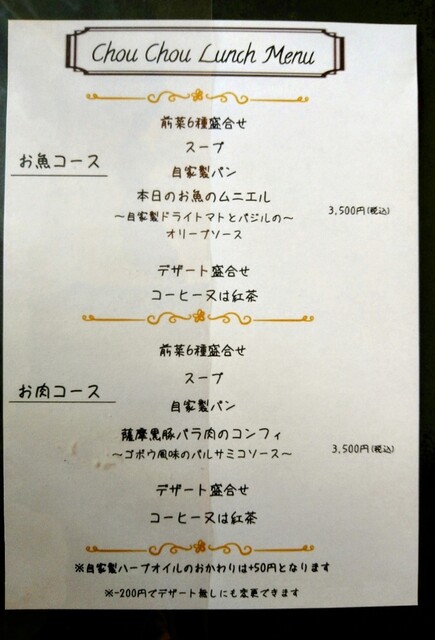 Chou Chou Lunch Menu
前菜6種盛合せ
スープ
お魚コース
自家製パン
本日のお魚のムニエル
～自家製ドライトマトとバジルの～
3,500円(税込)
オリーブソース
デザート盛合せ
コーヒー又は紅茶
前菜6種盛合せ
スープ
お肉コース
自家製パン
薩摩黒豚バラ肉のコンフィ
～ゴボウ風味のバルサミコソース～
3,500円(税込)
デザート盛合せ
コーヒー又は紅茶
※自家製ハーブオイルのおかわりは+50円となります
※-200円でデザート無しにも変更できます